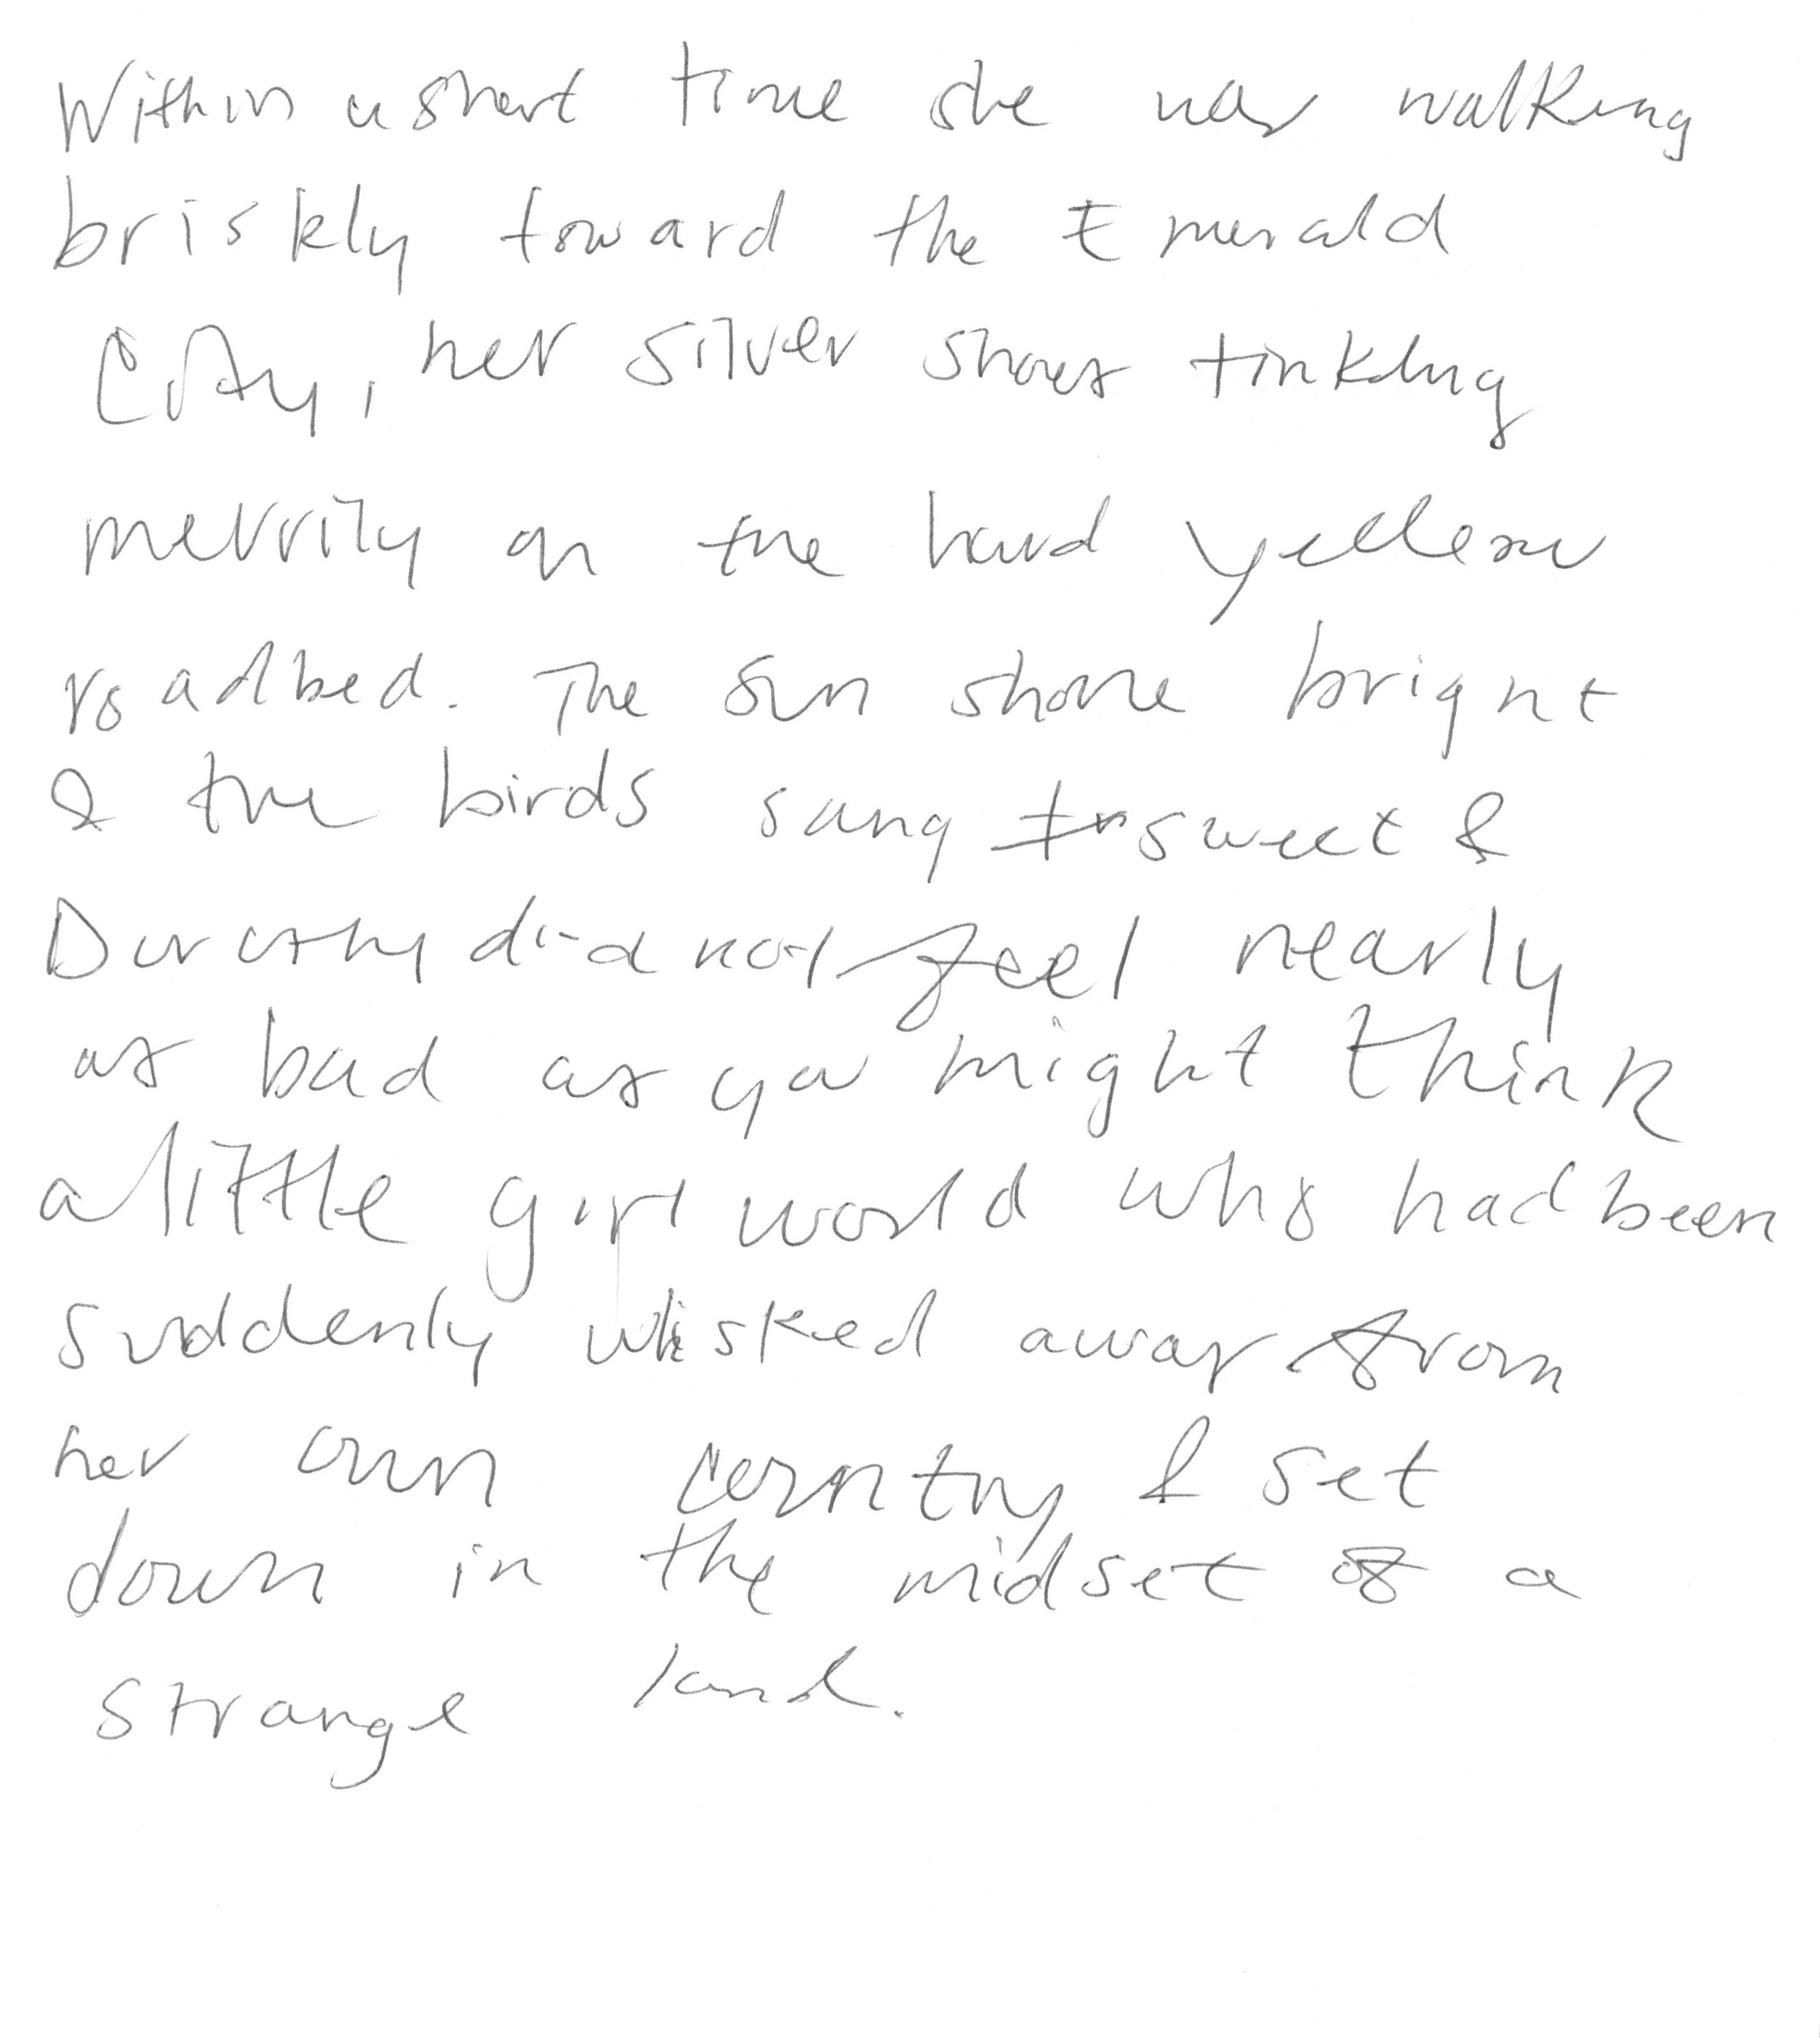 Within a short time she was walking
briskly toward the Emerald
City, her silver shoes tinkling
merrily on the hard yellow
roadbed. The sun shone bright
& the birds sang sweet &
Dorothy did not feel nearly
as bad as you might think
a little girl would who had been
suddenly whisked away from
her own country & set
down in the midset of a
strange land.